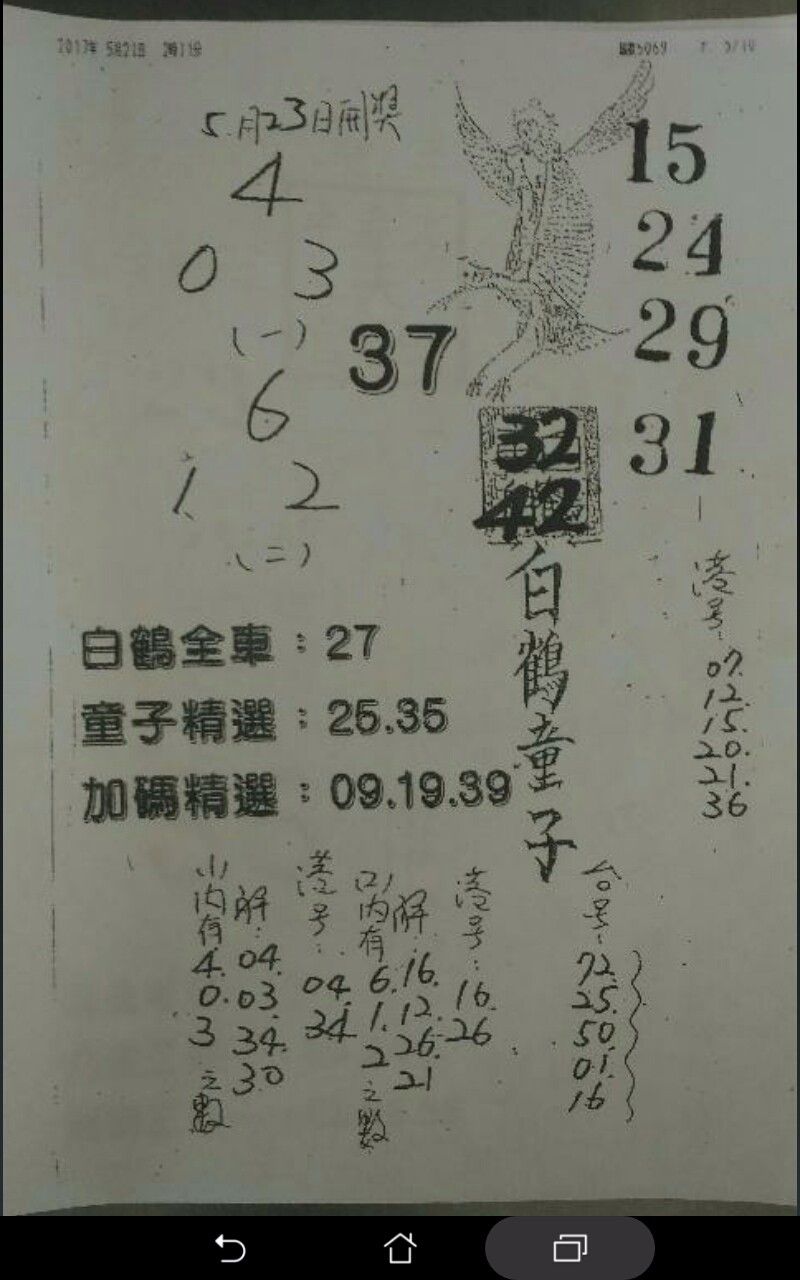 2017年 5月21日 2時11分
5月23日開獎
4
0 3
(一)
6
1 2
(二)
37
15
24
29
31
32
42
白鶴童子
白鶴全車：27
童子精選：25.35
加碼精選：09.19.39
港号：
07.
12.
15.
20.
21.
36
(1)內有
4.
0.
3
之數
解：
04.
03.
34.
30
港号：
04.
34
(2)內有
6.
1.
2
之數
解：
16.
12.
26.
21
港号：
16.
26
台号：
72.
25.
50
01.
16